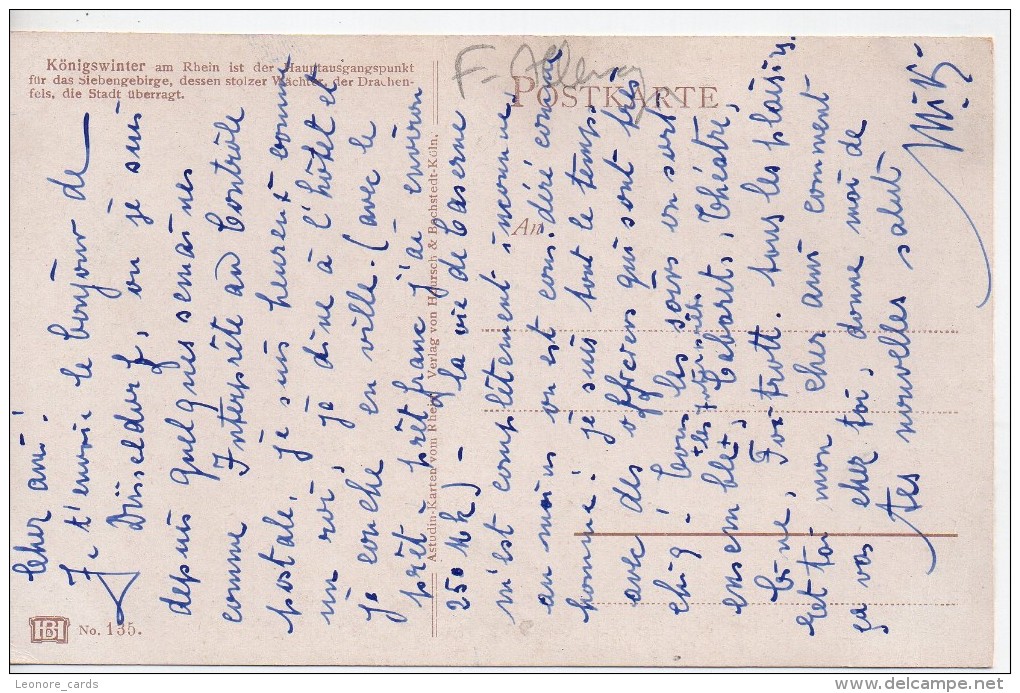 Königswinter am Rhein ist der Hauptausgangspunkt
für das Siebengebirge, dessen stolzer Wächter, der Drachen-
fels, die Stadt überragt.
POSTKARTE
An
Astudin-Karten vom Rhein. Verlag von Hoursch & Bechstedt-Köln.
HB
No. 135.
F-
Cher ami!
Je t'envoie le bonjour de
Düsseldorf, ou je suis
depuis quelques semaines
comme Interprète au Contrôle
postale. je suis heureux comme
un roi, je dine à l'hôtel et
je couche en ville. (avec le
prêt - prêt franc j'ai environ
250 Mk) - la vie de Caserne
m'est complètement inconnue
au moins on est considéré comme
homme! je suis tout le temps
avec des officiers qui sont très
chig! Tous les soirs on sort
ensemble, Cabarets, Théatre,
+ les
Ciné, Foxtrott. tous les plaisirs.
Et toi mon cher ami comment
ça vas cher toi, donne moi de
tes nouvelles salut
Leonore_cards
delcampe.net